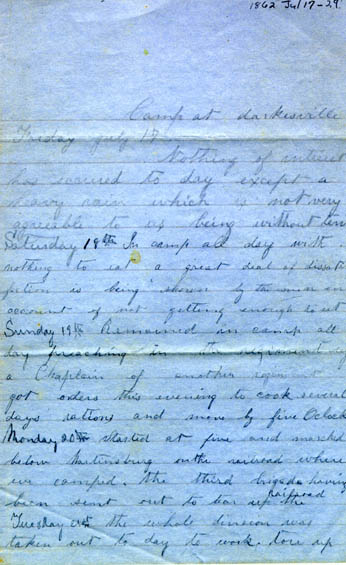 1862 Jul 17-29
Camp at darkesville
Friday july 17
Nothing of interest
has occured to day except a
heavy rain which is not very
agreeible to us being without ten
Saturday 18th In camp all day with
nothing to eat a great deal of disati
fction is being shown by the men on
account of not getting enough to eat
Sunday 19th Remained in camp all
day preaching in the regiment by
a Chaplin of another regiment
got oders this evening to cook several
days rations and move by five Oclock
Monday 20th started at five and marched
below Martinsburg on the railroad where
we camped. the third brigade having
been sent out to tear up the railroad
Tuesday 21st the whole division was
taken out to day to work. tore up